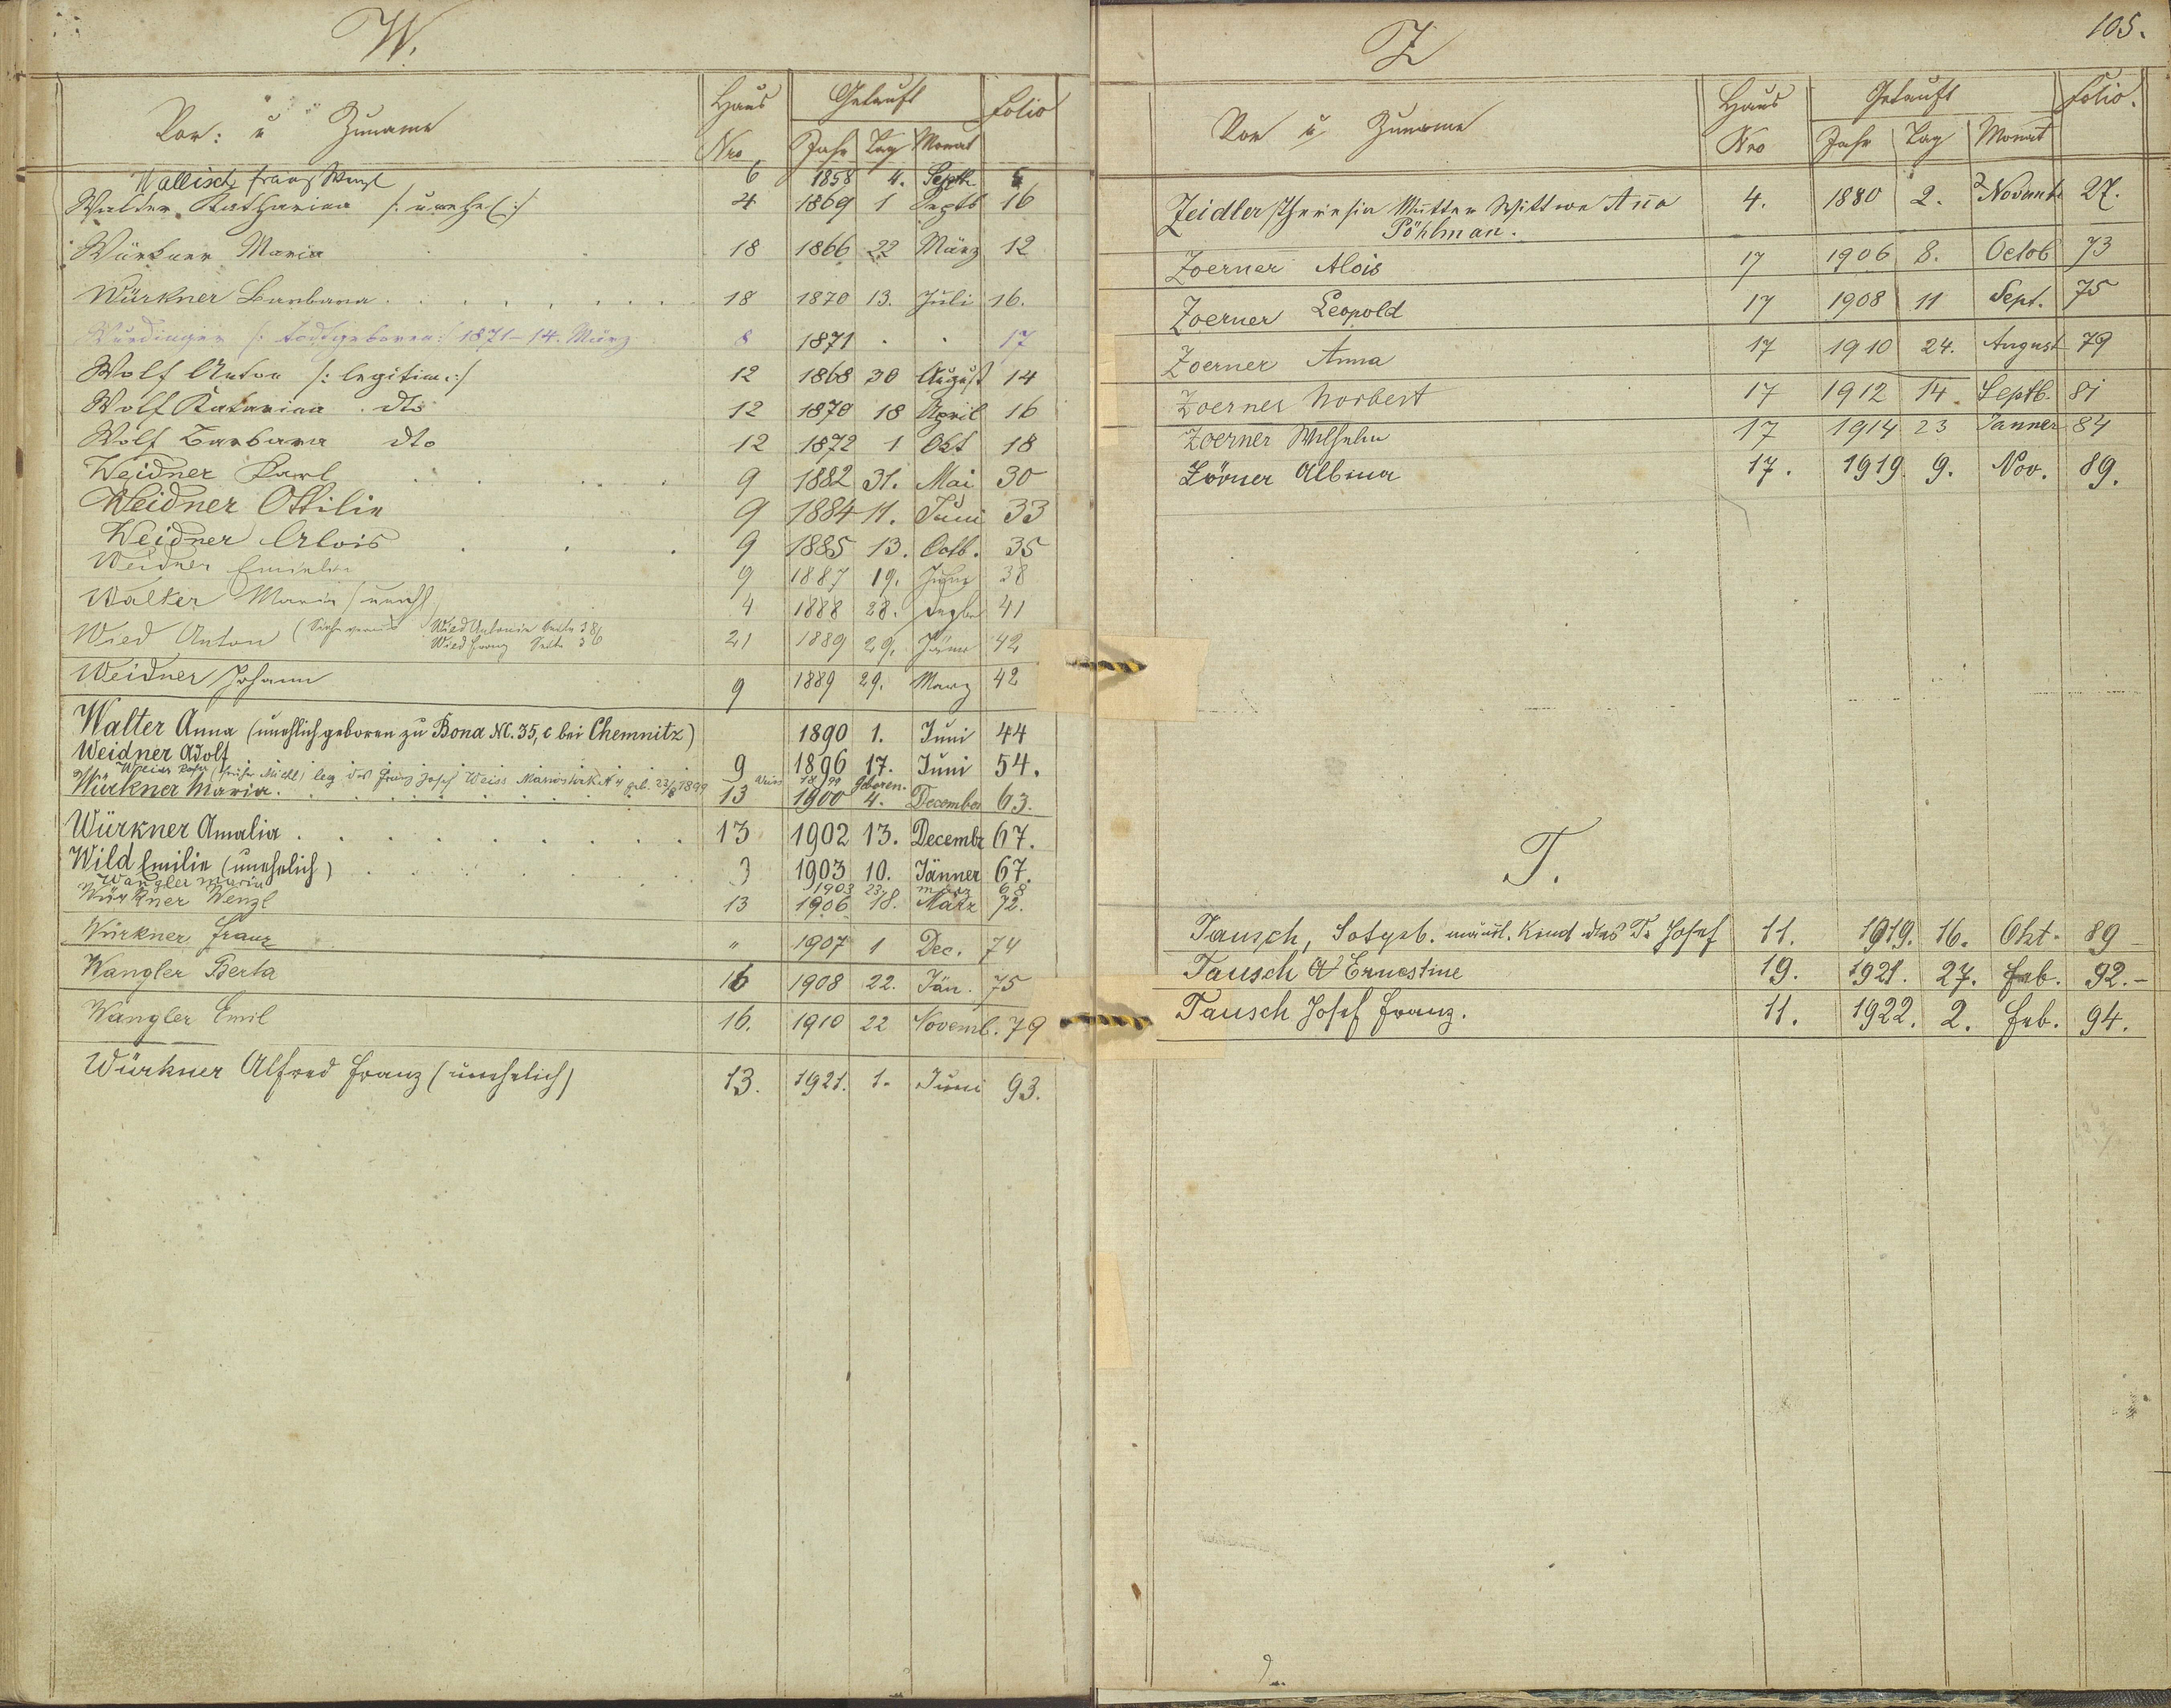 W.
Vor: u Zuname Haus Nro Getauft Jahr Tag Monat Folio
Wallisch Franz Wenzl 6 1858 4. Septb 6
Walder Katharina /: unehel :/ 4 1869 1 Septb 16
Würkner Maria 18 1866 22 März 12
Würkner Barbara 18 1870 13. Juli 16.
Würdinger /: todtgeboren :/ 1871 - 14. März 8 1871 . . 17
Wolf Anton /: legitim :/ 12 1868 30 August 14
Wolf Katarina dto 12 1870 18 April 16
Wolf Barbara dto 12 1872 1 Okt 18
Weidner Karl 9 1882 31. Mai 30
Weidner Ottilie 9 1884 11. Juni 33
Weidner Alois 9 1885 13. Octb. 35
Weidner Emilie 9 1887 19. 38
Walker Maria /unehl 4 1888 28. 41
Wied Anton (Siehe Wied Antonie Seite 38 Wied Franz Seite 36 21 1889 29. Jänner 42
Weidner Johann 9 1889 29. März 42
Walter Anna (unehlich geboren zu Bona N. 35, c bei Chemnitz) 1890 1. Juni 44
Weidner Adolf 9 1896 17. Juni 54.
Weiss (früher Michl) leg des Franz Josef Weiss geb. 23/8 1899
Würkner Maria. 13 1900 geboren. 4. December 63.
Würkner Amalia 13 1902 13. Decembr 67.
Wild Emilie (unehelich) 3 1903 10. Jänner 67.
Wangler Maria 1903 23. März 68
Würkner Wenzl 13 1906 18. März 72.
Würkner Franz " 1907 1 Dec. 74
Wangler Berta 16 1908 22. Jän. 75
Wangler Emil 16. 1910 22 Novemb. 79
Würkner Alfred Franz (unehelich) 13. 1921. 1. Juni 93.
Z
105.
Vor u Zuname Haus Nro Getauft Jahr Tag Monat Folio.
Zeidler Theresia Mutter Wittwe Anna 4. 1880 2. Novemb 27.
Pöhlman.
Zoerner Alois 17 1906 8. Octob 73
Zoerner Leopold 17 1908 11 Sept. 75
Zoerner Anna 17 1910 24. August 79
Zoerner Norbert 17 1912 14. Septb. 81
Zoerner Wilhelm 17 1914 23 Janner 84
Zörner Albina 17. 1919. 9. Nov. 89.
T.
Tausch, Totgeb. männl. Kind des T. Josef 11. 1919. 16. Okt. 89
Tausch Ernestine 19. 1921. 27. Feb. 92.-
Tausch Josef Franz. 11. 1922. 2. Feb. 94.